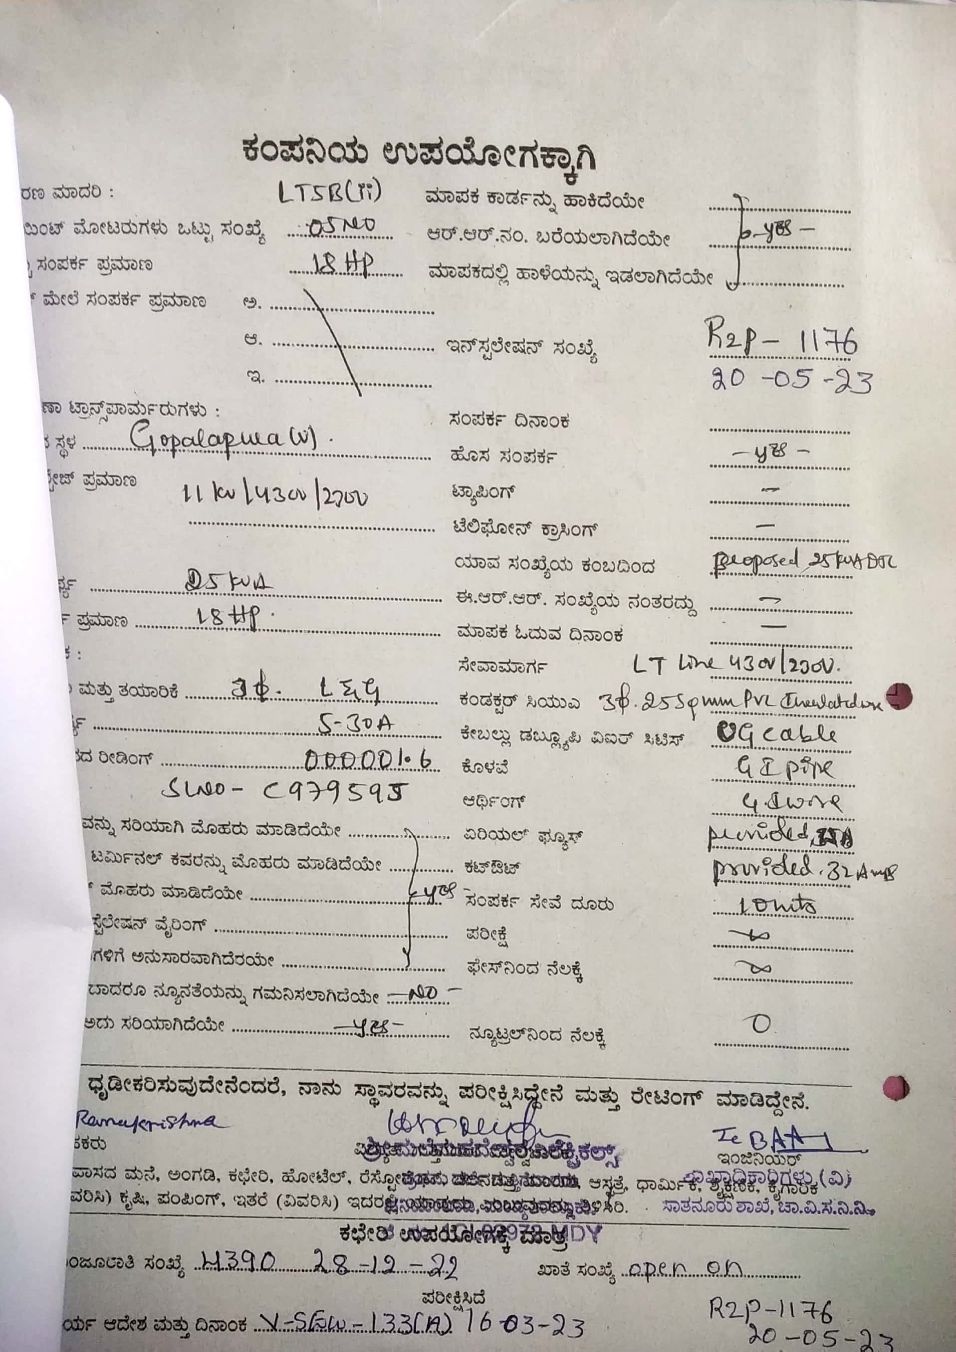 ಕಂಪನಿಯ ಉಪಯೋಗಕ್ಕಾಗಿ
ರಣ ಮಾದರಿ : LT5B(ii) ಮಾಪಕ ಕಾರ್ಡನ್ನು ಹಾಕಿದೆಯೇ
ಯಿಂಟ್ ಮೋಟರುಗಳು ಒಟ್ಟು ಸಂಖ್ಯೆ 05 NO ಆರ್.ಆರ್.ನಂ. ಬರೆಯಲಾಗಿದೆಯೇ - yes -
ಸಂಪರ್ಕ ಪ್ರಮಾಣ 18 HP ಮಾಪಕದಲ್ಲಿ ಹಾಳೆಯನ್ನು ಇಡಲಾಗಿದೆಯೇ
ಮೇಲೆ ಸಂಪರ್ಕ ಪ್ರಮಾಣ ಅ.
ಆ. ಇನ್‌ಸ್ಟಲೇಷನ್ ಸಂಖ್ಯೆ R2P - 1176
ಇ. 20 -05 -23
ಣಾ ಟ್ರಾನ್ಸ್‌ಪಾರ್ಮರುಗಳು : ಸಂಪರ್ಕ ದಿನಾಂಕ
ಸ್ಥಳ Gopalapura (v). ಹೊಸ ಸಂಪರ್ಕ - yes -
ಪ್ರಮಾಣ 11 kv/430v/230v ಟ್ಯಾಪಿಂಗ್ -
ಟೆಲಿಫೋನ್ ಕ್ರಾಸಿಂಗ್ -
ಯಾವ ಸಂಖ್ಯೆಯ ಕಂಬದಿಂದ proposed 25 kVA DTC
25 kVA ಈ.ಆರ್.ಆರ್. ಸಂಖ್ಯೆಯ ನಂತರದ್ದು -
ಪ್ರಮಾಣ 18 HP. ಮಾಪಕ ಓದುವ ದಿನಾಂಕ -
ಸೇವಾಮಾರ್ಗ LT Line 430v/230v.
ಮತ್ತು ತಯಾರಿಕೆ 3ϕ. L&G ಕಂಡಕ್ಟರ್ ಸಿಯುವಿ 3ϕ. 25 Sqmm PVC Insulated wire
5-30A ಕೇಬಲ್ಲು ಡಬ್ಲ್ಯೂಪಿ ವಿಐಆರ್ ಸಿಟಿಸ್ UG cable
ದ ರೀಡಿಂಗ್ 000001.6 ಕೊಳವೆ G I pipe
SLNO - C979595 ಆರ್ಥಿಂಗ್ G.I wire
ವನ್ನು ಸರಿಯಾಗಿ ಮೊಹರು ಮಾಡಿದೆಯೇ ಏರಿಯಲ್ ಫ್ಯೂಸ್ provided
ಟರ್ಮಿನಲ್ ಕವರನ್ನು ಮೊಹರು ಮಾಡಿದೆಯೇ ಕಟ್‌ಔಟ್ provided. 32 Amps
ಮೊಹರು ಮಾಡಿದೆಯೇ - yes - ಸಂಪರ್ಕ ಸೇವೆ ದೂರು 10 mts
ಸ್ಟೆಲೇಷನ್ ವೈರಿಂಗ್ ಪರೀಕ್ಷೆ ∞
ಗಳಿಗೆ ಅನುಸಾರವಾಗಿದೆರಯೇ ಫೇಸ್‌ನಿಂದ ನೆಲಕ್ಕೆ ∞
ಬಾದರೂ ನ್ಯೂನತೆಯನ್ನು ಗಮನಿಸಲಾಗಿದೆಯೇ - NO -
ಅದು ಸರಿಯಾಗಿದೆಯೇ - yes - ನ್ಯೂಟ್ರಲ್‌ನಿಂದ ನೆಲಕ್ಕೆ 0
ಧೃಡೀಕರಿಸುವುದೇನೆಂದರೆ, ನಾನು ಸ್ಥಾವರವನ್ನು ಪರೀಕ್ಷಿಸಿದ್ದೇನೆ ಮತ್ತು ರೇಟಿಂಗ್ ಮಾಡಿದ್ದೇನೆ.
Ramakrishna
ಕರು ಇಂಜಿನಿಯರ್
ವಾಸದ ಮನೆ, ಅಂಗಡಿ, ಕಛೇರಿ, ಹೋಟೆಲ್, ಆಸ್ಪತ್ರೆ, ಧಾರ್ಮಿಕ, ಶೈಕ್ಷಣಿಕ, ಕೈಗಾರಿಕೆ
ಶಾಖಾಧಿಕಾರಿಗಳು, (ವಿ)
ವರಿಸಿ) ಕೃಷಿ, ಪಂಪಿಂಗ್, ಇತರೆ (ವಿವರಿಸಿ) ತಿಳಿಸಿರಿ. ಸಾತನೂರು ಶಾಖೆ, ಚಾ.ವಿ.ಸ.ನಿ.ನಿ.
ಕಛೇರಿ ಉಪಯೋಗಕ್ಕೆ ಮಾತ್ರ
ಂಜೂರಾತಿ ಸಂಖ್ಯೆ 4390 28-12-22 ಖಾತೆ ಸಂಖ್ಯೆ open on
ಪರೀಕ್ಷಿಸಿದೆ R2P-1176
ರ್ಯ ಆದೇಶ ಮತ್ತು ದಿನಾಂಕ 133(A) 16-03-23 20-05-23